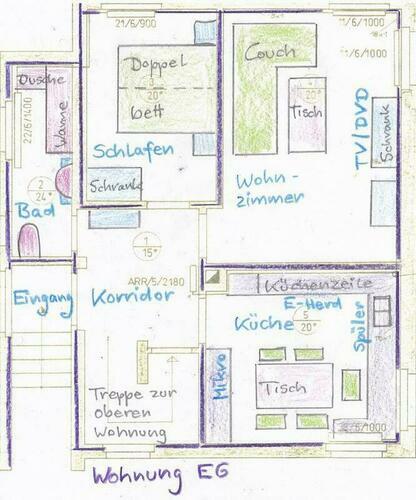 21/6/900
11/6/1000
11/6/1000
Couch
Doppel
bett
20°
Dusche
Wanne
22/6/1400
4
20°
Tisch
TV/DVD
Schrank
Schlafen
Schrank
Wohn-
zimmer
2
24°
Bad
1
15°
ARR/5/2180
Eingang
Korridor
Küchenzeile
E-Herd
Küche
5
20°
Spüler
Mikro
Tisch
Treppe zur
oberen
Wohnung
Wohnung EG